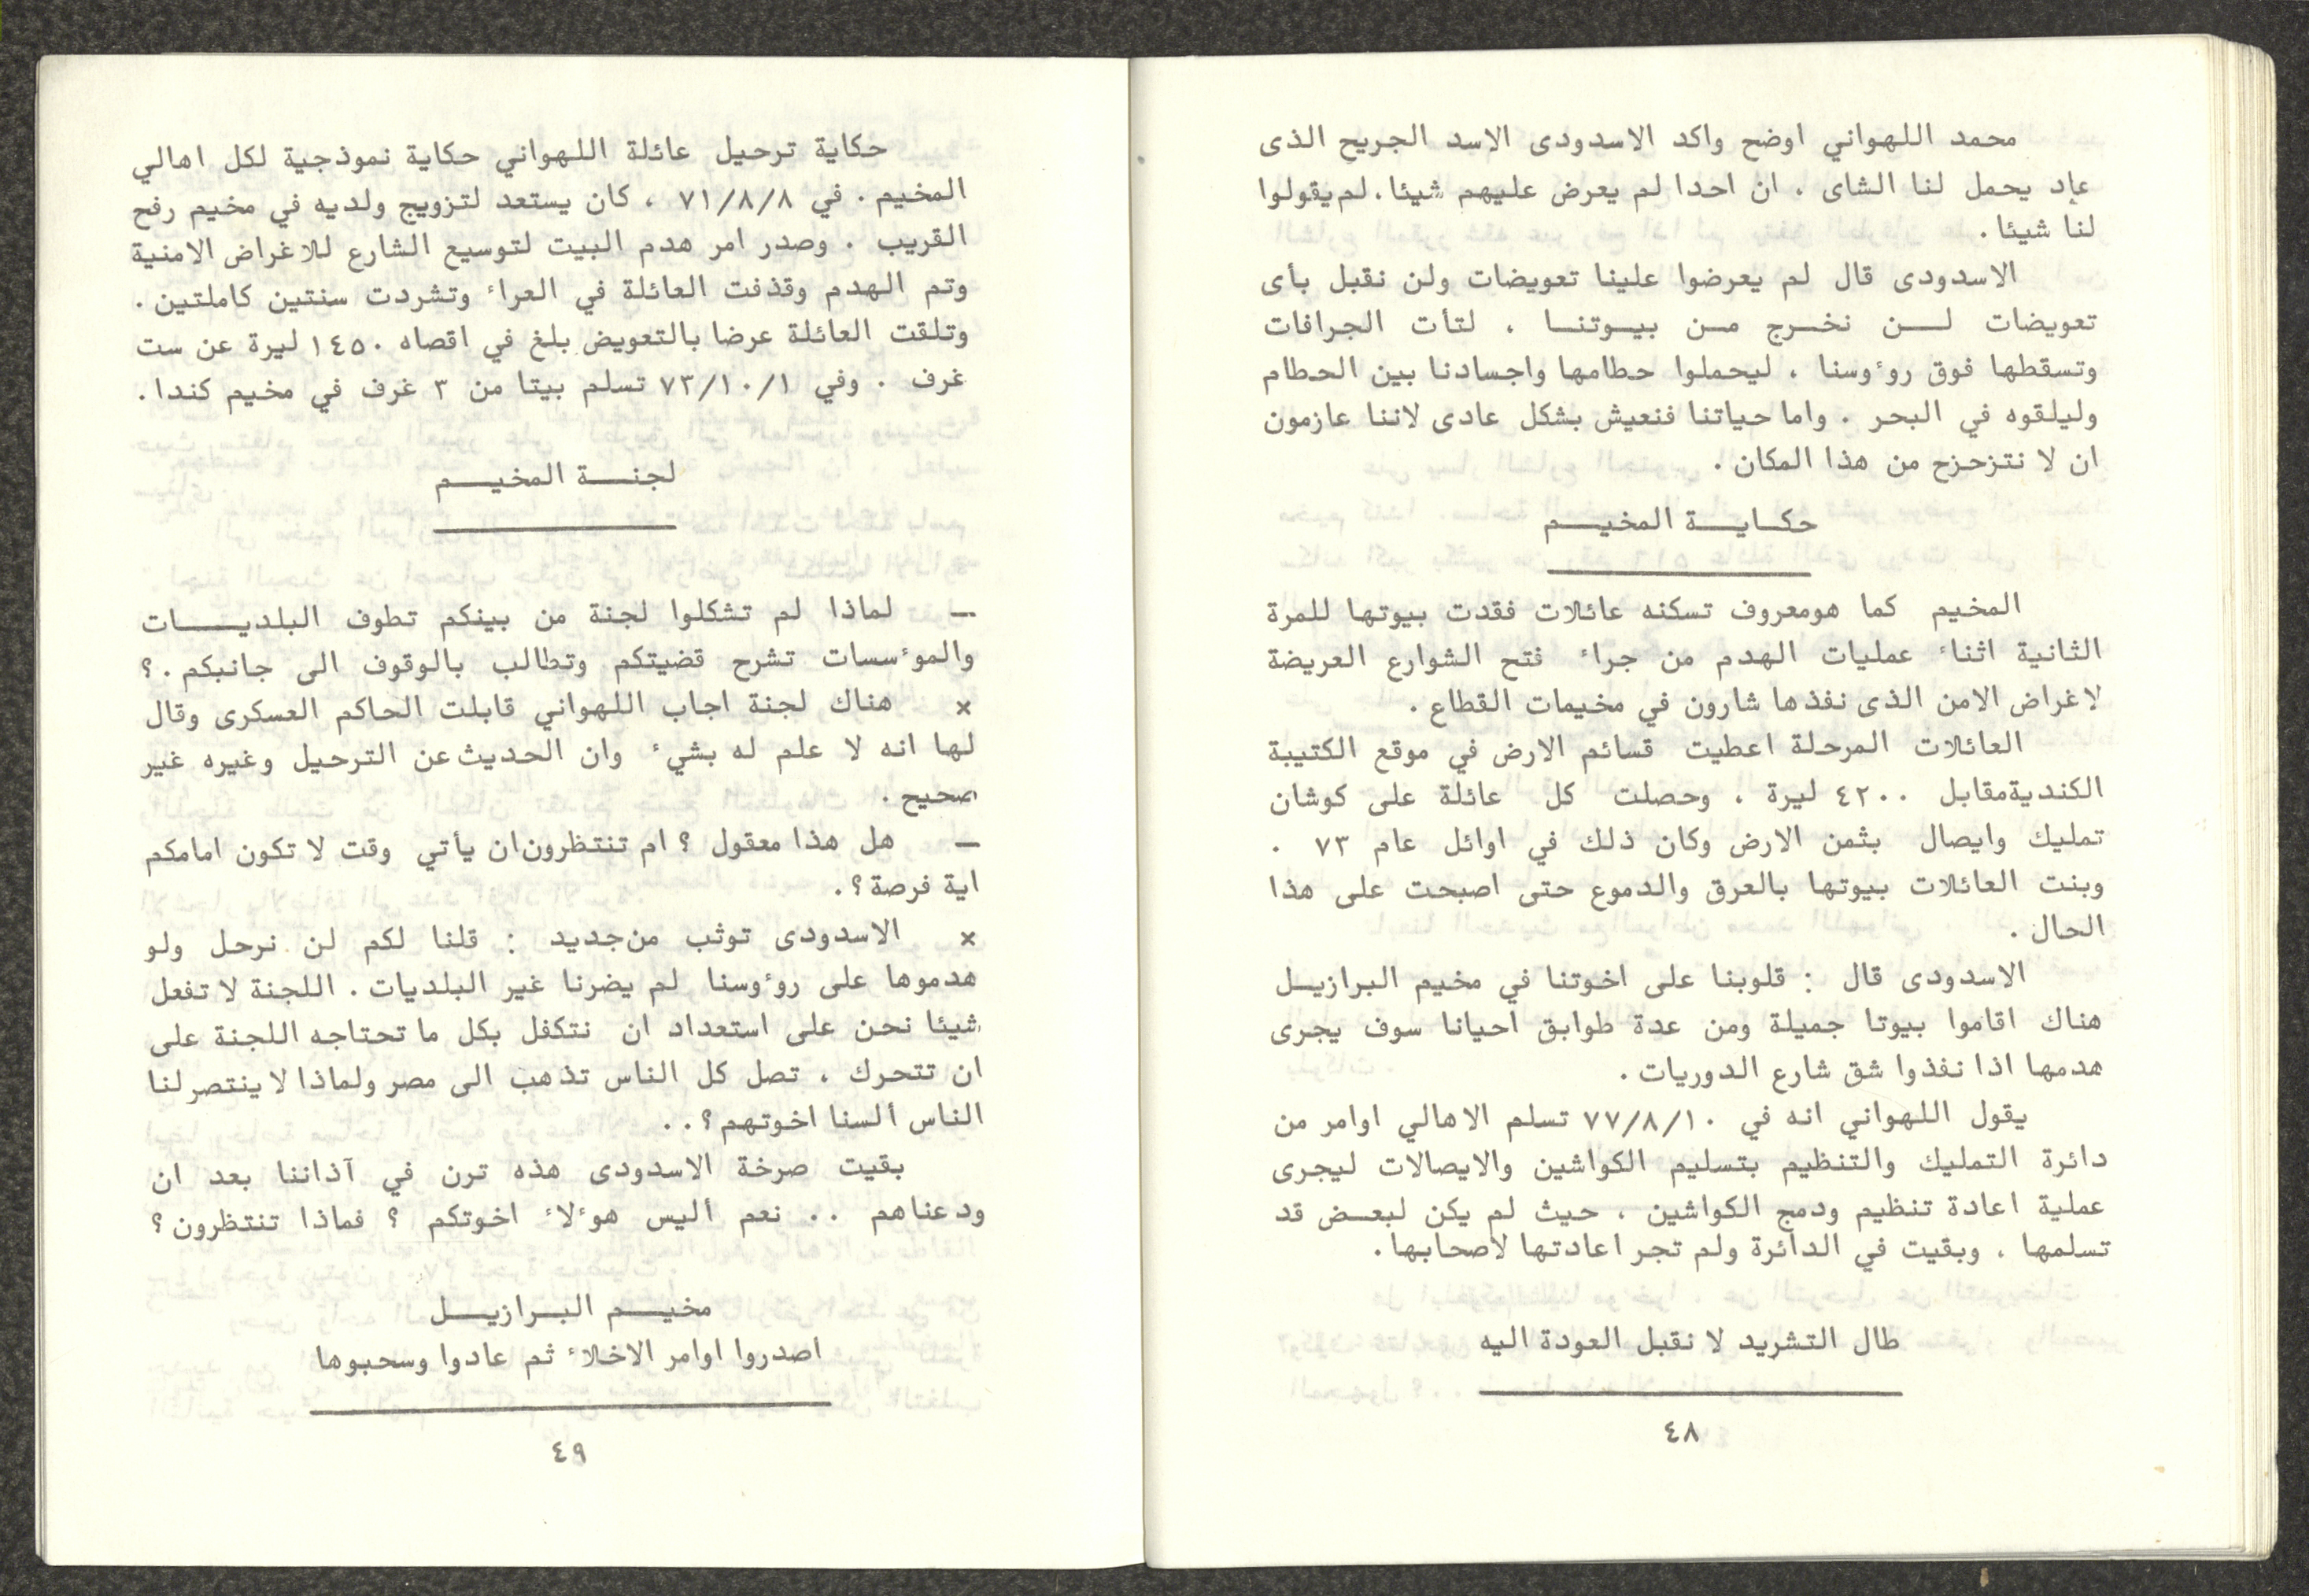 محمد اللهواني اوضح واكد الاسدودى الاسد الجريح الذى
عاد يحمل لنا الشاى ، ان احدا لم يعرض عليهم شيئا . لم يقولوا
لنا شيئا .
الاسدودى قال لم يعرضوا علينا تعويضات ولن نقبل بأى
تعويضات لـــن نخـرج مـن بيـوتنـا ، لتأت الجرافات
وتسقطها فوق روءوسنا ، ليحملوا حطامها واجسادنا بين الحطام
وليلقوه في البحر . واما حياتنا فنعيش بشكل عادى لاننا عازمون
ان لا نتزحزح من هذا المكان .
حكـايـــة المخيـــم
المخيم كما هومعروف تسكنه عائلات فقدت بيوتها للمرة
الثانية اثناء عمليات الهدم من جراء فتح الشوارع العريضة
لاغراض الامن الذى نفذها شارون في مخيمات القطاع .
العائلات المرحلة اعطيت قسائم الارض في موقع الكتيبة
الكنديةمقابل ٤٢٠٠ ليرة ، وحصلت كل عائلة على كوشان
تمليك وايصال بثمن الارض وكان ذلك في اوائل عام ٧٣ .
وبنت العائلات بيوتها بالعرق والدموع حتى اصبحت على هذا
الحال .
الاسدودى قال : قلوبنا على اخوتنا في مخيم البرازيـل
هناك اقاموا بيوتا جميلة ومن عدة طوابق احيانا سوف يجرى
هدمها اذا نفذوا شق شارع الدوريات .
يقول اللهواني انه في ٧٧/٨/١٠ تسلم الاهالي اوامر من
دائرة التمليك والتنظيم بتسليم الكواشين والايصالات ليجرى
عملية اعادة تنظيم ودمج الكواشين ، حيث لم يكن لبعـض قد
تسلمها ، وبقيت في الدائرة ولم تجر اعادتها لاصحابها .
طال التشريد لا نقبل العودة اليه
٤٨
حكاية ترحيل عائلة اللهواني حكاية نموذجية لكل اهالي
المخيم . في ٧١/٨/٨ ، كان يستعد لتزويج ولديه في مخيم رفح
القريب . وصدر امر هدم البيت لتوسيع الشارع للاغراض الامنية
وتم الهدم وقذفت العائلة في العراء وتشردت سنتين كاملتين .
وتلقت العائلة عرضا بالتعويض بلغ في اقصاه ١٤٥٠ ليرة عن ست
غرف . وفي ٧٣/١٠/١ تسلم بيتا من ٣ غرف في مخيم كندا .
لجنـــة المخيـــم
— لماذا لم تشكلوا لجنة من بينكم تطوف البلديـــات
والموءسسات تشرح قضيتكم وتطالب بالوقوف الى جانبكم . ؟
× هناك لجنة اجاب اللهواني قابلت الحاكم العسكرى وقال
لها انه لا علم له بشيء وان الحديث عن الترحيل وغيره غير
صحيح .
— هل هذا معقول ؟ ام تنتظرون ان يأتي وقت لا تكون امامكم
اية فرصة ؟ .
× الاسدودى توثب من جديد : قلنا لكم لن نرحل ولو
هدموها على روءوسنا لم يضرنا غير البلديات . اللجنة لا تفعل
شيئا نحن على استعداد ان نتكفل بكل ما تحتاجه اللجنة على
ان تتحرك ، تصل كل الناس تذهب الى مصر ولماذا لا ينتصر لنا
الناس ألسنا اخوتهم ؟ . .
بقيت صرخة الاسدودى هذه ترن في آذاننا بعد ان
ودعناهم . . نعم أليس هوءلاء اخوتكم ؟ فماذا تنتظرون ؟
مخيـــم البـرازيـــل
اصدروا اوامر الاخلاء ثم عادوا وسحبوها
٤٩